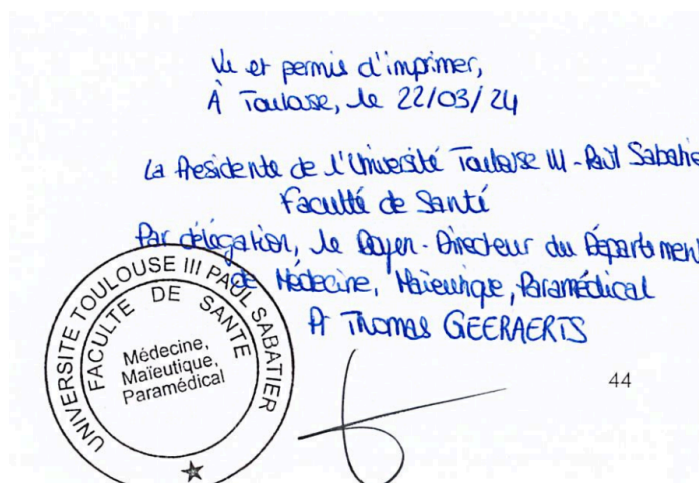 Vu et permis d'imprimer,
À Toulouse, le 22/03/24
La Présidente de l'Université Toulouse III - Paul Sabatie
Faculté de Santé
Par délégation, le Doyen - Directeur du Département
de Médecine, Maïeutique, Paramédical
Pr Thomas GEERAERTS
UNIVERSITE TOULOUSE III PAUL SABATIER
FACULTE DE SANTE
Médecine,
Maïeutique,
Paramédical
44